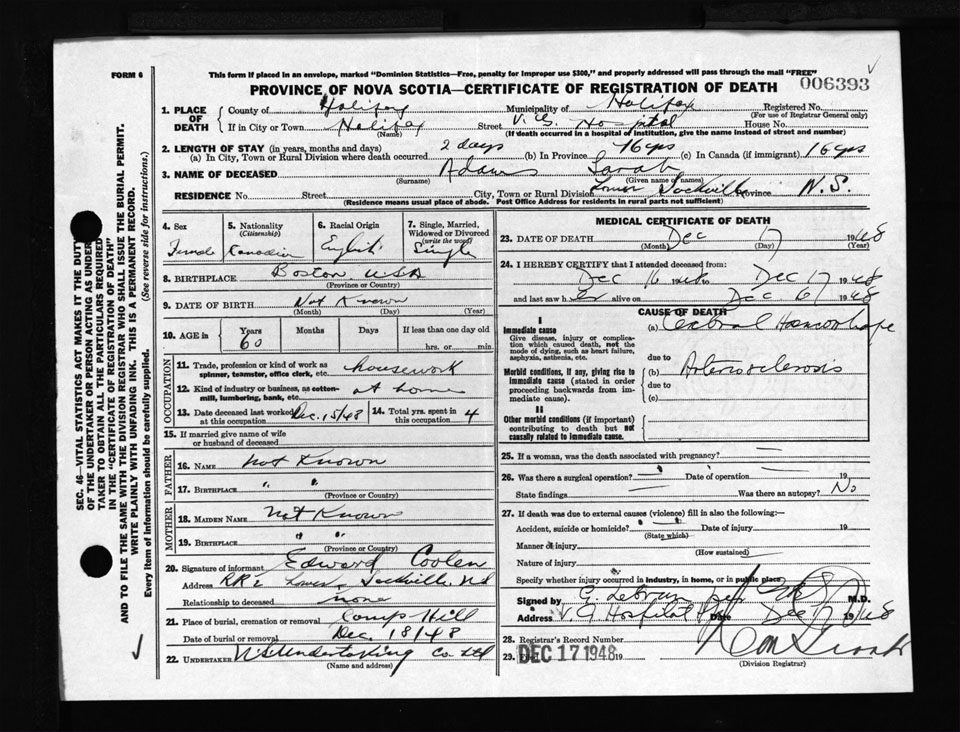 FORM 6
This form if placed in an envelope, marked "Dominion Statistics—Free, penalty for improper use $300," and properly addressed will pass through the mail "FREE"
PROVINCE OF NOVA SCOTIA—CERTIFICATE OF REGISTRATION OF DEATH
006393
1. PLACE OF DEATH
County of Halifax Municipality of Halifax Registered No.
(For use of Registrar General only)
If in City or Town Halifax Street V. G. Hospital House No.
(Name) (If death occurred in a hospital of institution, give the name instead of street and number)
2. LENGTH OF STAY (in years, months and days)
(a) In City, Town or Rural Division where death occurred 2 days (b) In Province 16 yrs (c) In Canada (if immigrant) 16 yrs
3. NAME OF DECEASED Adams Sarah
(Surname) (Given name or names)
RESIDENCE No. Street City, Town or Rural Division Lower Sackville Province N.S.
(Residence means usual place of abode. Post Office Address for residents in rural parts not sufficient)
4. Sex Female
5. Nationality (Citizenship) Canadian
6. Racial Origin English
7. Single, Married, Widowed or Divorced (write the word) Single
8. BIRTHPLACE Boston, USA
(Province or Country)
9. DATE OF BIRTH Not Known
(Month) (Day) (Year)
10. AGE in Years Months Days If less than one day old
60 hrs. or min.
OCCUPATION
11. Trade, profession or kind of work as spinner, teamster, office clerk, etc. housework
12. Kind of industry or business, as cotton-mill, lumbering, bank, etc. at home
13. Date deceased last worked at this occupation Dec. 15/48
14. Total yrs. spent in this occupation 4
15. If married give name of wife or husband of deceased
FATHER
16. NAME not Known
17. BIRTHPLACE " "
(Province or Country)
MOTHER
18. MAIDEN NAME Not Known
19. BIRTHPLACE " "
(Province or Country)
20. Signature of informant Edward Coolen
Address RR 2 Lower Sackville, N.S
Relationship to deceased none
21. Place of burial, cremation or removal Camp Hill
Date of burial or removal Dec. 18/48
22. UNDERTAKER NS Undertaking Co. Ltd
(Name and address)
MEDICAL CERTIFICATE OF DEATH
23. DATE OF DEATH Dec 17 1948
(Month) (Day) (Year)
24. I HEREBY CERTIFY that I attended deceased from:
Dec 16 1948 Dec 17 1948
and last saw her alive on Dec 1948
CAUSE OF DEATH
I
Immediate cause
Give disease, injury or complication which caused death, not the mode of dying, such as heart failure, asphyxia, asthenia, etc.
(a) Cerebral Haemorrhage
due to
Morbid conditions, if any, giving rise to immediate cause (stated in order proceeding backwards from immediate cause).
(b) Arteriosclerosis
due to
(c)
II
Other morbid conditions (if important) contributing to death but not causally related to immediate cause.
25. If a woman, was the death associated with pregnancy?
26. Was there a surgical operation? Date of operation 19
State findings Was there an autopsy? No
27. If death was due to external causes (violence) fill in also the following:—
Accident, suicide or homicide? Date of injury 19
(State which)
Manner of injury
(How sustained)
Nature of injury
Specify whether injury occurred in industry, in home, or in public place
Signed by M.D.
V. G. Hospital Date Dec 17 1948
28. Registrar's Record Number
29. Filed DEC 17 1948 19
(Division Registrar)
SEC. 46—VITAL STATISTICS ACT MAKES IT THE DUTY
OF THE UNDERTAKER OR PERSON ACTING AS UNDER-
TAKER TO OBTAIN ALL THE PARTICULARS REQUIRED
IN THE "CERTIFICATE OF REGISTRATION OF DEATH"
AND TO FILE THE SAME WITH THE DIVISION REGISTRAR WHO SHALL ISSUE THE BURIAL PERMIT.
WRITE PLAINLY WITH UNFADING INK. THIS IS A PERMANENT RECORD.
Every item of information should be carefully supplied. (See reverse side for instructions.)